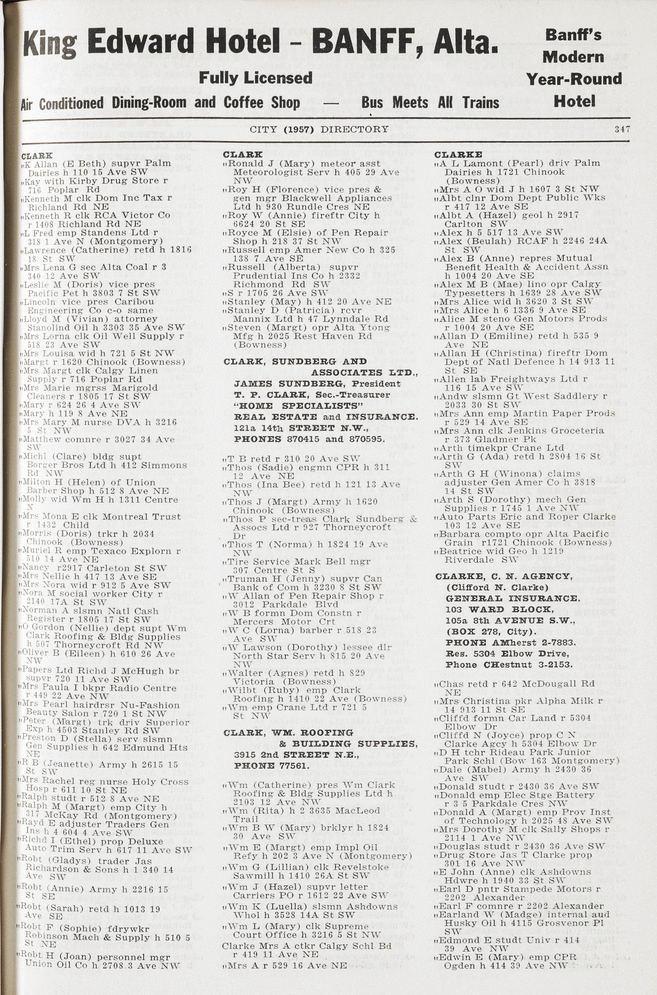 King Edward Hotel - BANFF, Alta.
Fully Licensed
Air Conditioned Dining-Room and Coffee Shop — Bus Meets All Trains
Banff's
Modern
Year-Round
Hotel
CITY (1957) DIRECTORY 347
CLARK
"K Allan (E Beth) supvr Palm
Dairies h 110 15 Ave SW
"Kay with Kirby Drug Store r
716 Poplar Rd
"Kenneth M clk Dom Inc Tax r
Richland Rd NE
"Kenneth R clk RCA Victor Co
r 1408 Richland Rd NE
"L Fred emp Standens Ltd r
318 1 Ave N (Montgomery)
"Lawrence (Catherine) retd h 1816
18 St SW
"Mrs Lena G sec Alta Coal r 3
340 12 Ave SW
"Leslie M (Doris) vice pres
Pacific Pet h 3803 7 St SW
"Lincoln vice pres Caribou
Engineering Co c-o same
"Lloyd M (Vivian) attorney
Stanolind Oil h 3303 35 Ave SW
"Mrs Lorna clk Oil Well Supply r
518 23 Ave SW
"Mrs Louisa wid h 721 5 St NW
"Margt r 1620 Chinook (Bowness)
"Mrs Margt clk Calgy Linen
Supply r 716 Poplar Rd
"Mrs Marie mgrss Marigold
Cleaners r 1805 17 St SW
"Mary r 624 26 4 Ave SW
"Mary h 119 8 Ave NE
"Mrs Mary M nurse DVA h 3216
5 St NW
"Matthew comnre r 3027 34 Ave
SW
"Michl (Clare) bldg supt
Borger Bros Ltd h 412 Simmons
Rd NW
"Milton H (Helen) of Union
Barber Shop h 512 8 Ave NE
"Molly wid Wm H h 1311 Centre
N
"Mrs Mona E clk Montreal Trust
r 1432 Child
"Morris (Doris) trkr h 2034
Chinook (Bowness)
"Muriel R emp Texaco Explorn r
510 14 Ave NE
"Nancy r2917 Carleton St SW
"Mrs Nellie h 417 13 Ave SE
"Mrs Nora wid r 912 5 Ave SW
"Nora M social worker City r
2140 17A St SW
"Norman A slsmn Natl Cash
Register r 1805 17 St SW
"O Gordon (Nellie) dept supt Wm
Clark Roofing & Bldg Supplies
h 507 Thorneycroft Rd NW
"Oliver B (Eileen) h 610 26 Ave
NW
"Papers Ltd Richd J McHugh br
supvr 720 11 Ave SW
"Mrs Paula I bkpr Radio Centre
r 449 22 Ave NW
"Mrs Pearl hairdrsr Nu-Fashion
Beauty Salon r 720 1 St NW
"Peter (Margt) trk driv Superior
Exp h 4503 Stanley Rd SW
"Preston D (Stella) serv slsmn
Gen Supplies h 642 Edmund Hts
NE
"R B (Jeanette) Army h 2615 15
St SW
"Mrs Rachel reg nurse Holy Cross
Hosp r 611 10 St NE
"Ralph studt r 512 8 Ave NE
"Ralph M (Margt) emp City h
317 McKay Rd (Montgomery)
"Rayd E adjuster Traders Gen
Ins h 4 604 4 Ave SW
"Richd I (Ethel) prop Deluxe
Auto Trim Serv h 617 11 Ave SW
"Robt (Gladys) trader Jas
Richardson & Sons h 1 340 14
Ave SW
"Robt (Annie) Army h 2216 15
St SE
"Robt (Sarah) retd h 1013 19
Ave SE
"Robt F (Sophie) fdrywkr
Robinson Mach & Supply h 510 5
St NE
"Robt H (Joan) personnel mgr
Union Oil Co h 2708 3 Ave NW
CLARK
"Ronald J (Mary) meteor asst
Meteorologist Serv h 405 29 Ave
NW
"Roy H (Florence) vice pres &
gen mgr Blackwell Appliances
Ltd h 930 Rundle Cres NE
"Roy W (Annie) fireftr City h
6624 20 St SE
"Royce M (Elsie) of Pen Repair
Shop h 218 37 St NW
"Russell emp Amer New Co h 325
138 7 Ave SE
"Russell (Alberta) supvr
Prudential Ins Co h 2332
Richmond Rd SW
"S r 1705 26 Ave SW
"Stanley (May) h 412 20 Ave NE
"Stanley D (Patricia) rcvr
Mannix Ltd h 47 Lynndale Rd
"Steven (Margt) opr Alta Ytong
Mfg h 2025 Rest Haven Rd
(Bowness)
CLARK, SUNDBERG AND
ASSOCIATES LTD.,
JAMES SUNDBERG, President
T. P. CLARK, Sec.-Treasurer
"HOME SPECIALISTS"
REAL ESTATE and INSURANCE.
121a 14th STREET N.W.,
PHONES 870415 and 870595.
"T B retd r 310 20 Ave SW
"Thos (Sadie) engmn CPR h 311
12 Ave NE
"Thos (Ina Bee) retd h 121 13 Ave
NW
"Thos J (Margt) Army h 1620
Chinook (Bowness)
"Thos P sec-treas Clark Sundberg &
Assocs Ltd r 927 Thorneycroft
Dr
"Thos T (Norma) h 1824 19 Ave
NW
"Tire Service Mark Bell mgr
307 Centre St S
"Truman H (Jenny) supvr Can
Bank of Com h 3230 8 St SW
"W Allan of Pen Repair Shop r
3012 Parkdale Blvd
"W B formn Dom Constn r
Mercers Motor Crt
"W C (Lorna) barber r 518 23
Ave SW
"W Lawson (Dorothy) lessee dlr
North Star Serv h 815 20 Ave
NW
"Walter (Agnes) retd h 829
Victoria (Bowness)
"Wilbt (Ruby) emp Clark
Roofing h 1410 22 Ave (Bowness)
"Wm emp Crane Ltd r 721 5
St NW
CLARK, WM. ROOFING
& BUILDING SUPPLIES,
3915 2nd STREET N.E.,
PHONE 77561.
"Wm (Catherine) pres Wm Clark
Roofing & Bldg Supplies Ltd h
2103 12 Ave NW
"Wm (Rita) h 2 3635 MacLeod
Trail
"Wm B W (Mary) brklyr h 1824
30 Ave SW
"Wm E (Margt) emp Impl Oil
Refy h 202 3 Ave N (Montgomery)
"Wm G (Lillian) clk Revelstoke
Sawmill h 1410 26A St SW
"Wm J (Hazel) supvr letter
Carriers PO r 1612 22 Ave SW
"Wm K (Luella) slsmn Ashdowns
Whol h 3528 14A St SW
"Wm L (Mary) clk Supreme
Court Office h 3216 5 St NW
Clarke Mrs A ctkr Calgy Schl Bd
r 419 11 Ave NE
"Mrs A r 529 16 Ave NE
CLARKE
"A L Lamont (Pearl) driv Palm
Dairies h 1721 Chinook
(Bowness)
"Mrs A O wid J h 1607 3 St NW
"Albt clnr Dom Dept Public Wks
r 417 12 Ave SE
"Albt A (Hazel) geol h 2917
Carlton SW
"Alex h 5 517 13 Ave SW
"Alex (Beulah) RCAF h 2246 24A
St SW
"Alex B (Anne) repres Mutual
Benefit Health & Accident Assn
h 1004 20 Ave SE
"Alex M B (Mae) lino opr Calgy
Typesetters h 1639 28 Ave SW
"Mrs Alice wid h 3620 3 St SW
"Mrs Alice h 6 1336 9 Ave SE
"Alice M steno Gen Motors Prods
r 1004 20 Ave SE
"Allan D (Emiline) retd h 535 9
Ave NE
"Allan H (Christina) fireftr Dom
Dept of Natl Defence h 14 913 11
St SE
"Allen lab Freightways Ltd r
116 15 Ave SW
"Andw slsmn Gt West Saddlery r
2033 30 St SW
"Mrs Ann emp Martin Paper Prods
r 529 14 Ave SE
"Mrs Ann clk Jenkins Groceteria
r 373 Gladmer Pk
"Arth timekpr Crane Ltd
"Arth G (Ada) retd h 2804 16 St
SW
"Arth G H (Winona) claims
adjuster Gen Amer Co h 3818
14 St SW
"Arth S (Dorothy) mech Gen
Supplies r 1745 1 Ave NW
"Auto Parts Eric and Roper Clarke
103 12 Ave SE
"Barbara compto opr Alta Pacific
Grain r1721 Chinook (Bowness)
"Beatrice wid Geo h 1219
Riverdale SW
CLARKE, C. N. AGENCY,
(Clifford N. Clarke)
GENERAL INSURANCE.
103 WARD BLOCK,
105a 8th AVENUE S.W.,
(BOX 278, City).
PHONE AMherst 2-7883.
Res. 5304 Elbow Drive,
Phone CHestnut 3-2153.
"Chas retd r 642 McDougall Rd
NE
"Mrs Christina pkr Alpha Milk r
14 913 11 St SE
"Cliffd formn Car Land r 5304
Elbow Dr
"Cliffd N (Joyce) prop C N
Clarke Agcy h 5304 Elbow Dr
"D H tchr Rideau Park Junior
Park Schl (Bow 163 Montgomery)
"Dale (Mabel) Army h 2430 36
Ave SW
"Donald studt r 2430 36 Ave SW
"Donald emp Elec Stge Battery
r 3 5 Parkdale Cres NW
"Donald A (Margt) emp Prov Inst
of Technology h 2025 48 Ave SW
"Mrs Dorothy M clk Sally Shops r
2114 1 Ave NW
"Douglas studt r 2430 36 Ave SW
"Drug Store Jas T Clarke prop
301 16 Ave NW
"E John (Anne) clk Ashdowns
Hdwre h 1940 33 St SW
"Earl D pntr Stampede Motors r
2202 Alexander
"Earl F comnre r 2202 Alexander
"Earland W (Madge) internal aud
Husky Oil h 4115 Grosvenor Pl
SW
"Edmond E studt Univ r 414
39 Ave NW
"Edwin E (Mary) emp CPR
Ogden h 414 39 Ave NW